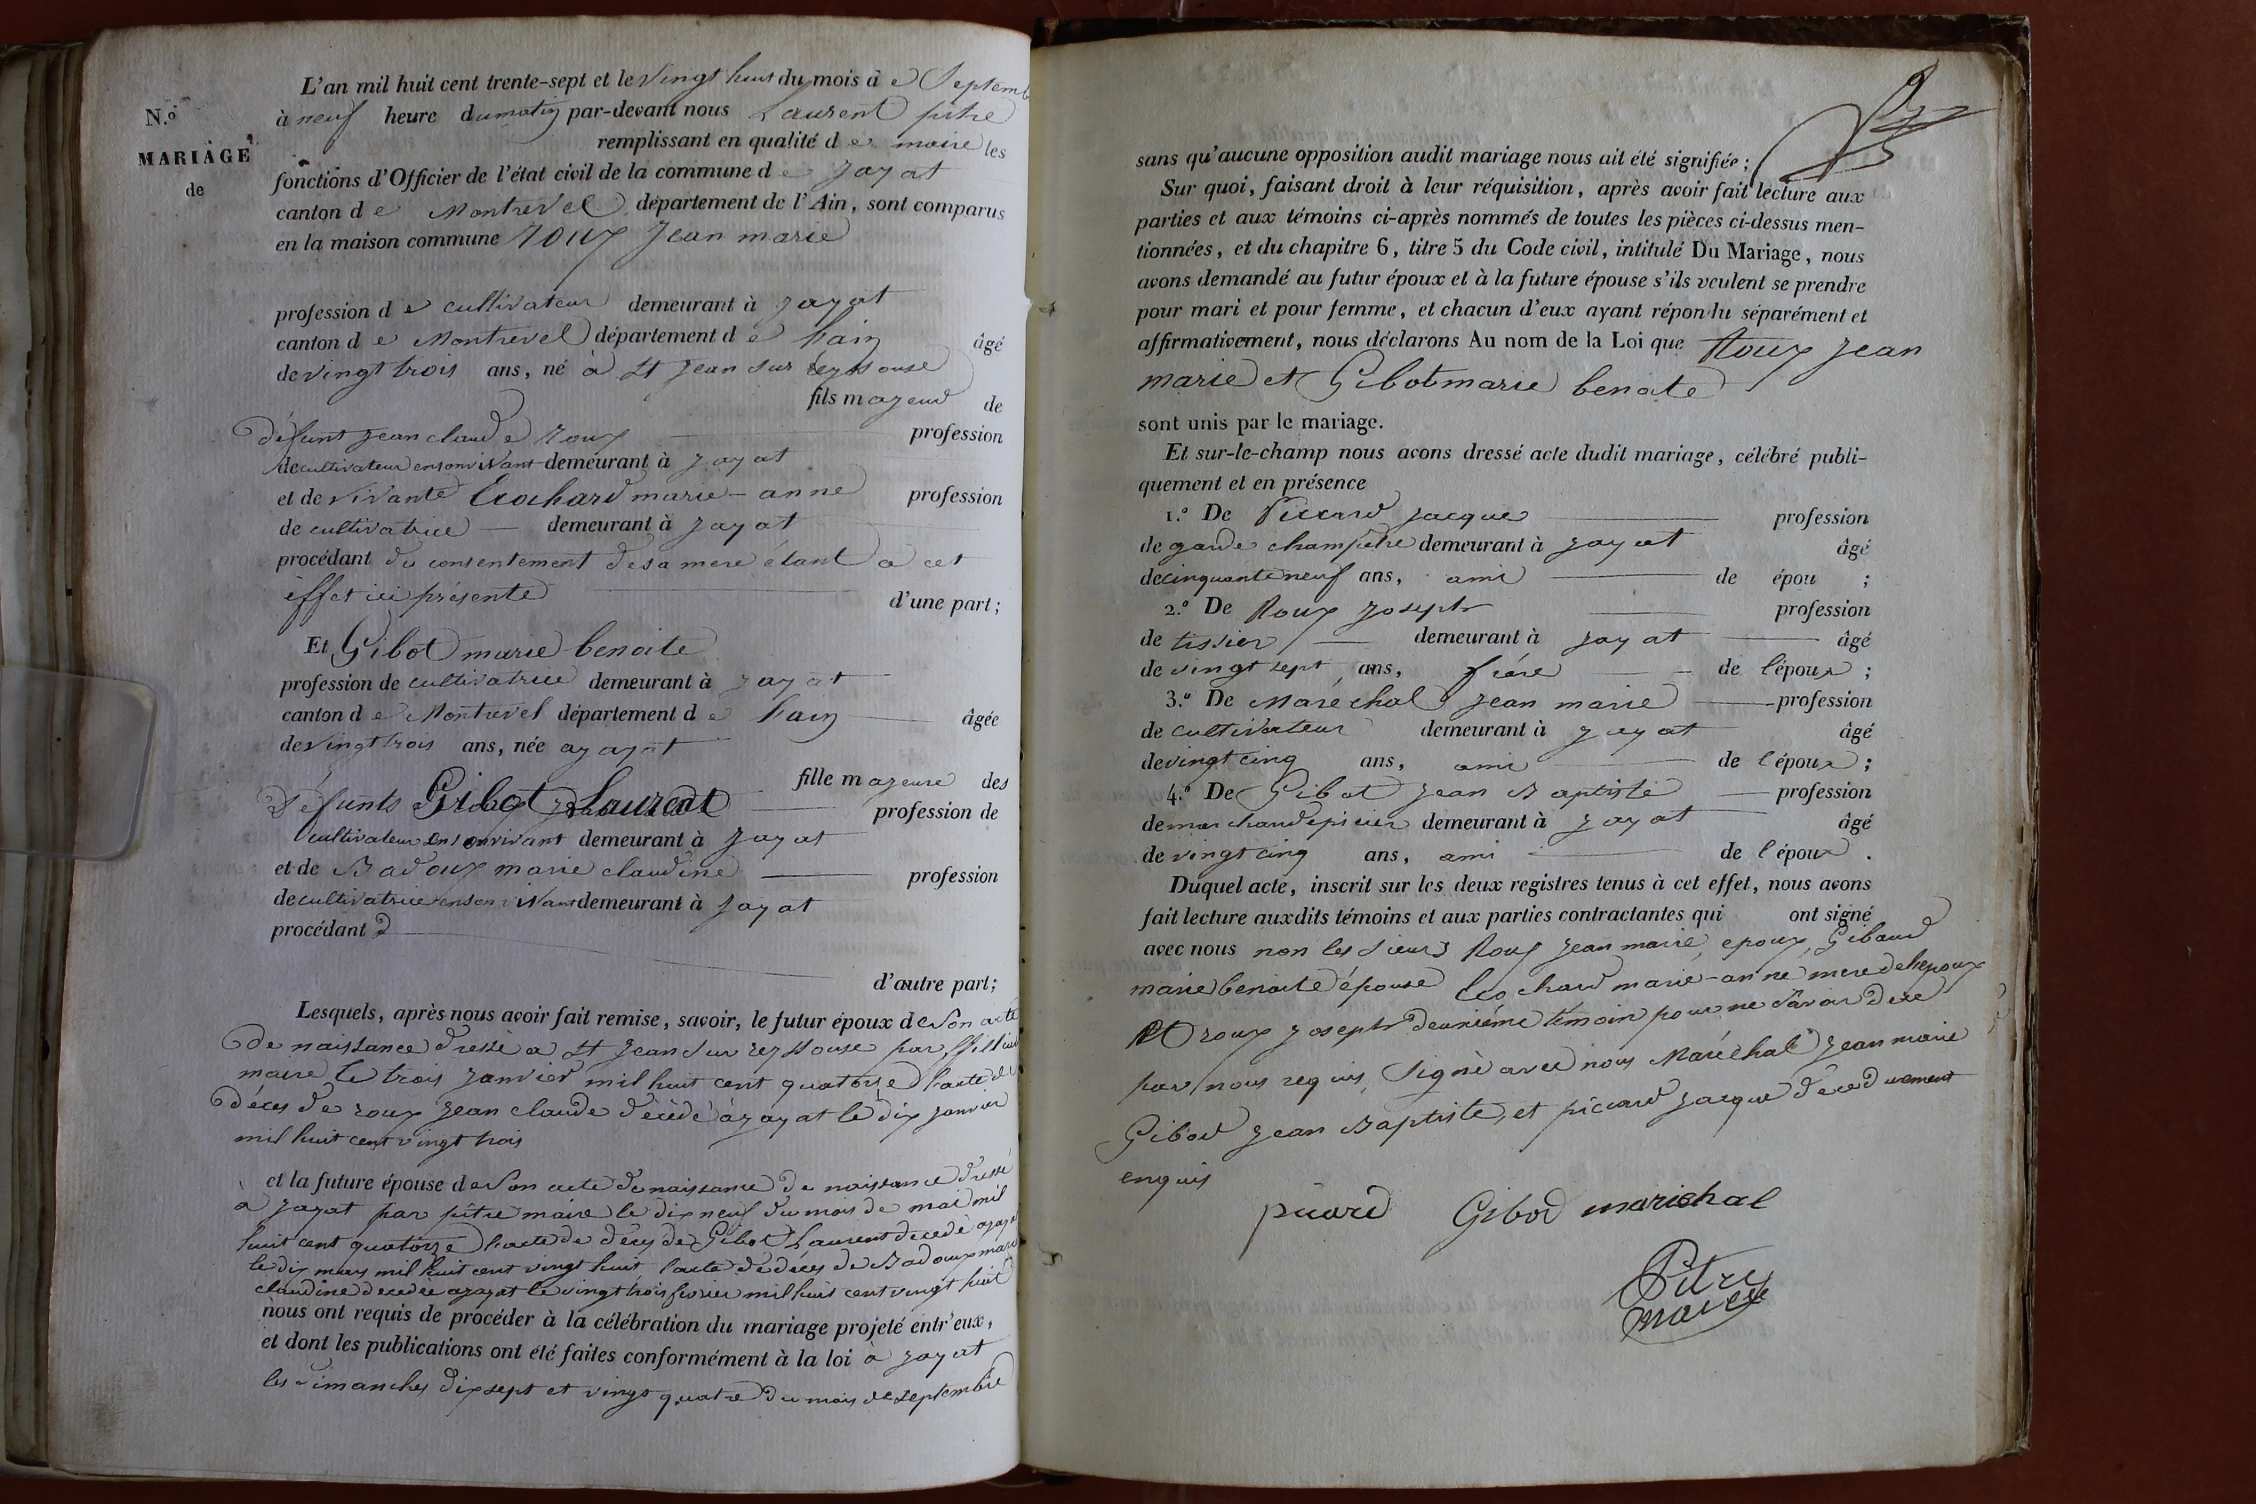 N.º
MARIAGE
de
L'an mil huit cent trente-sept et le vingt huit du mois de Septemb
à neuf heure dumatin par-devant nous Laurent pitre
remplissant en qualité de maire les
fonctions d'Officier de l'état civil de la commune de Jayat
canton de Montrevel département de l'Ain, sont comparus
en la maison commune roux Jean marie
profession de cultivateur demeurant à Jayat
canton de Montrevel département de lain âgé
de vingt trois ans, né à St Jean sur reyssouse
fils majeur de
défunt jean claude roux profession
de cultivateur ensonvivant demeurant à Jayat
et de vivante Cochard marie-anne profession
de cultivatrice demeurant à Jayat
procédant du consentement desa mere étant à cet
effet ici présente d'une part;
Et Gibot marie benoite
profession de cultivatrice demeurant à Jayat
canton de Montrevel département de lain âgée
de vingt trois ans, née a jayat
fille majeure des
défunts Gibot Laurent profession de
cultivateur ensonvivant demeurant à Jayat
et de Badoux marie claudine profession
de cultivatrice enson vivant demeurant à Jayat
procédant d
d'autre part;
Lesquels, après nous avoir fait remise, savoir, le futur époux de Son acte
de naissance dressé a St Jean Sur reyssouse par
maire le trois janvier mil huit cent quatorze lacte de
décès de roux jean claude décédé à jayat le dix janvier
mil huit cent vingt trois
et la future épouse de Son acte de naissance de naissance dressé
à Jayat par pitre maire le dix neuf du mois de mai mil
huit cent quatorze lacte de décés de Gibot Laurent decedé ajayat
le dix mars mil huit cent vingt huit lacte de décés de Badoux marie
claudine decedée ajayat le vingt trois fevrier mil huit cent vingt huit
nous ont requis de procéder à la célébration du mariage projeté entr'eux,
et dont les publications ont été faites conformément à la loi à Jayat
les dimanches dix sept et vingt quatre du mois de septembre
sans qu'aucune opposition audit mariage nous ait été signifiée;
Sur quoi, faisant droit à leur réquisition, après avoir fait lecture aux
parties et aux témoins ci-après nommés de toutes les pièces ci-dessus men-
tionnées, et du chapitre 6, titre 5 du Code civil, intitulé Du Mariage, nous
avons demandé au futur époux et à la future épouse s'ils veulent se prendre
pour mari et pour femme, et chacun d'eux ayant répondu séparément et
affirmativement, nous déclarons Au nom de la Loi que Roux jean
marie et Gibot marie benoite
sont unis par le mariage.
Et sur-le-champ nous avons dressé acte dudit mariage, célébré publi-
quement et en présence
1.º De Piccard Jacque profession
de garde champetre demeurant à Jayat âgé
de cinquante neuf ans, ami de épou ;
2.º De Roux Joseph profession
de tissier demeurant à Jayat âgé
de vingt sept ans, frére de l'époux ;
3.º De Maréchal Jean marie profession
de cultivateur demeurant à Jayat âgé
de vingt cinq ans, ami de l'époux ;
4.º De Gibot Jean Baptiste profession
de marchandepicier demeurant à Jayat âgé
de vingt cinq ans, ami de l'époux .
Duquel acte, inscrit sur les deux registres tenus à cet effet, nous avons
fait lecture auxdits témoins et aux parties contractantes qui ont signé
avec nous non les Sieurs Roux jean marie, epoux, Gibaud
marie benoite épouse Cochard marie-anne mere delepoux
et roux joseph deuxiéme témoin pour ne Savoir decee
par nous requis, Signé avec nous Maréchal jean marie
Gibod Jean Baptiste, et piccard jacque decedument
enquis
picard Gibod marichal
Pitre
maire